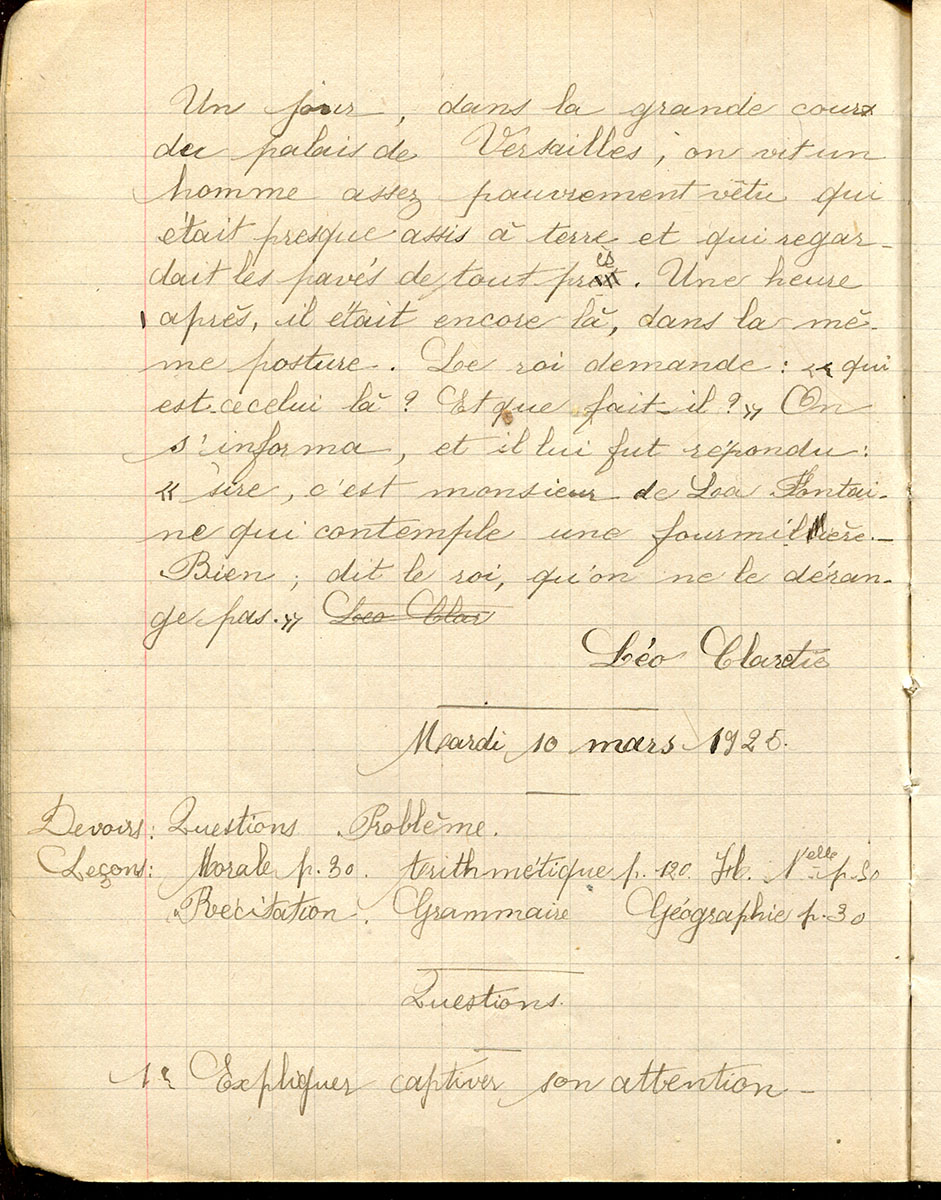 Un jour, dans la grande cour
du palais de Versailles, on vit un
homme assez pauvrement vêtu qui
était presque assis à terre et qui regar-
dait les pavés de tout près. Une heure
après, il était encore là, dans la mê-
me posture. Le roi demande : « qui
est-ce celui là ? Et que fait-il ? » On
s'informa, et il lui fut répondu :
« sire, c'est monsieur de La Fontai-
ne qui contemple une fourmilière. –
Bien ; dit le roi, qu'on ne le déran-
ge pas. » Léo Clar
Léo Claretie
Mardi 10 mars 1925.
Devoirs : Questions. Problème.
Leçons : Morale p. 30. Arithmétique p. 120. H. Nelle p. 30
Récitation. Grammaire Géographie p. 30
Questions.
1º Expliquer captiver son attention –